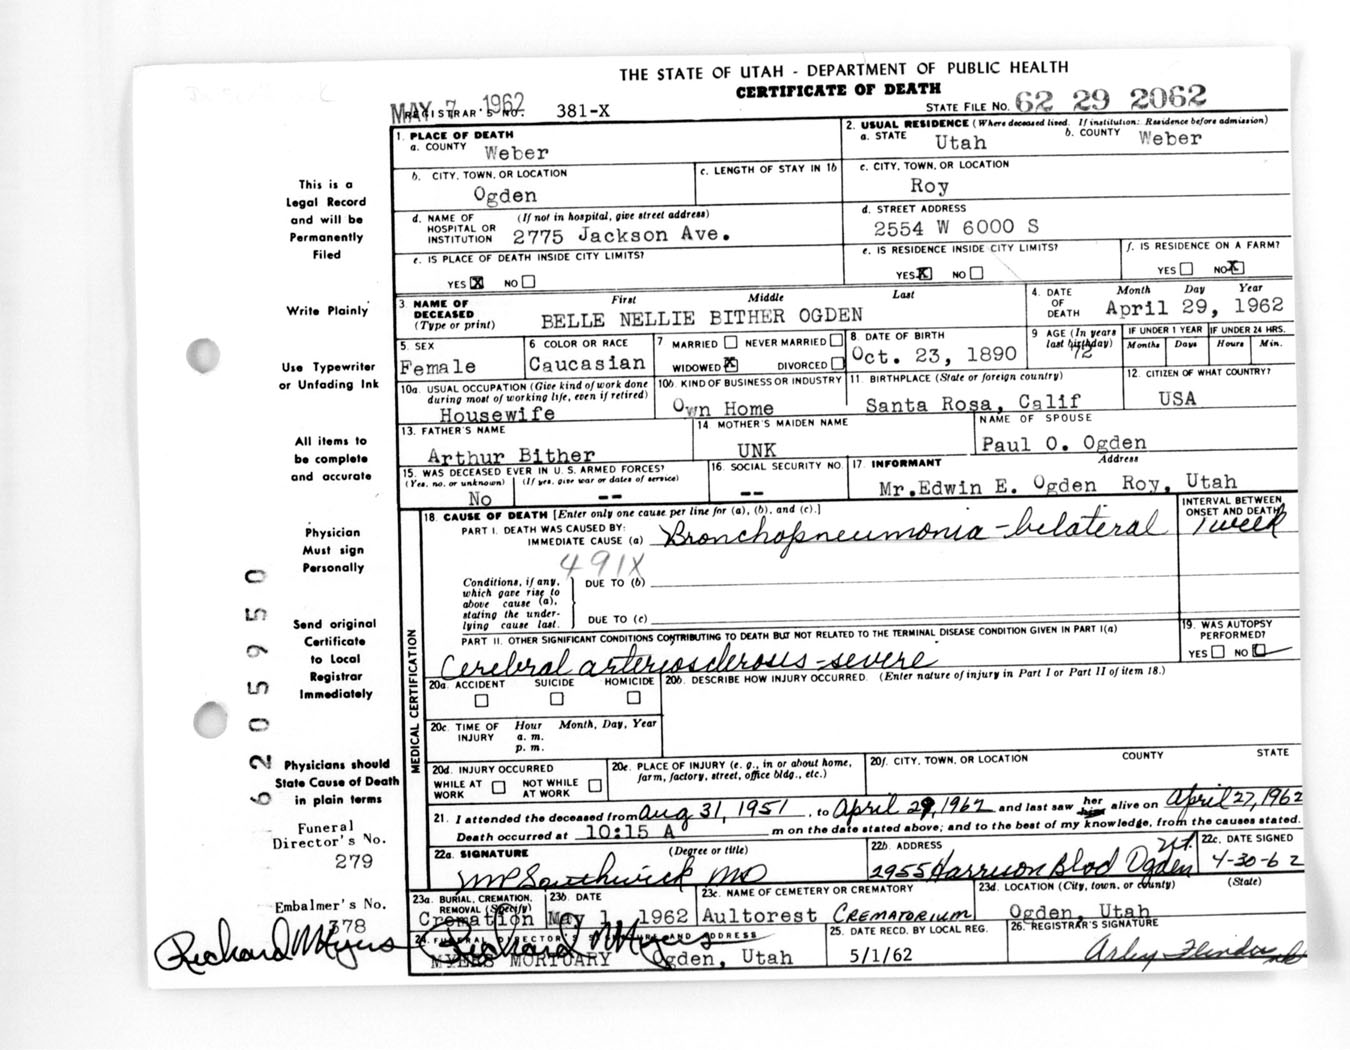 THE STATE OF UTAH - DEPARTMENT OF PUBLIC HEALTH
CERTIFICATE OF DEATH
MAY 7 1962
REGISTRAR'S NO. 381-X
STATE FILE NO. 62 29 2062
1. PLACE OF DEATH
a. COUNTY Weber
2. USUAL RESIDENCE (Where deceased lived. If institution: Residence before admission)
a. STATE Utah b. COUNTY Weber
b. CITY, TOWN, OR LOCATION Ogden
c. LENGTH OF STAY IN 1b
c. CITY, TOWN, OR LOCATION
Roy
d. NAME OF HOSPITAL OR INSTITUTION (If not in hospital, give street address)
2775 Jackson Ave.
d. STREET ADDRESS
2554 W 6000 S
e. IS PLACE OF DEATH INSIDE CITY LIMITS?
YES X NO
e. IS RESIDENCE INSIDE CITY LIMITS?
YES X NO
f. IS RESIDENCE ON A FARM?
YES NO X
3. NAME OF DECEASED (Type or print)
First Middle Last
BELLE NELLIE BITHER OGDEN
4. DATE OF DEATH Month Day Year
April 29, 1962
5. SEX
Female
6. COLOR OR RACE
Caucasian
7 MARRIED NEVER MARRIED
WIDOWED X DIVORCED
8. DATE OF BIRTH
Oct. 23, 1890
9 AGE (In years last birthday)
72
IF UNDER 1 YEAR IF UNDER 24 HRS.
Months Days Hours Min.
10a. USUAL OCCUPATION (Give kind of work done during most of working life, even if retired)
Housewife
10b. KIND OF BUSINESS OR INDUSTRY
Own Home
11. BIRTHPLACE (State or foreign country)
Santa Rosa, Calif
12. CITIZEN OF WHAT COUNTRY?
USA
13. FATHER'S NAME
Arthur Bither
14. MOTHER'S MAIDEN NAME
UNK
NAME OF SPOUSE
Paul O. Ogden
15. WAS DECEASED EVER IN U. S. ARMED FORCES?
(Yes, no. or unknown) (If yes, give war or dates of service)
No --
16. SOCIAL SECURITY NO.
--
17. INFORMANT Address
Mr. Edwin E. Ogden Roy, Utah
MEDICAL CERTIFICATION
18. CAUSE OF DEATH [Enter only one cause per line for (a), (b), and (c).]
INTERVAL BETWEEN ONSET AND DEATH
PART I. DEATH WAS CAUSED BY:
IMMEDIATE CAUSE (a) Bronchopneumonia - bilateral 1 week
491X
Conditions, if any, which gave rise to above cause (a), stating the underlying cause last.
DUE TO (b)
DUE TO (c)
PART II. OTHER SIGNIFICANT CONDITIONS CONTRIBUTING TO DEATH BUT NOT RELATED TO THE TERMINAL DISEASE CONDITION GIVEN IN PART I(a)
Cerebral arteriosclerosis - severe
19. WAS AUTOPSY PERFORMED?
YES NO
20a. ACCIDENT SUICIDE HOMICIDE
20b. DESCRIBE HOW INJURY OCCURRED. (Enter nature of injury in Part I or Part II of item 18.)
20c. TIME OF INJURY Hour Month, Day, Year
a. m.
p. m.
20d. INJURY OCCURRED
WHILE AT WORK NOT WHILE AT WORK
20e. PLACE OF INJURY (e. g., in or about home, farm, factory, street, office bldg., etc.)
20f. CITY, TOWN, OR LOCATION COUNTY STATE
21. I attended the deceased from Aug 31, 1951, to April 29, 1962 and last saw her him alive on April 27, 1962
Death occurred at 10:15 A m on the date stated above; and to the best of my knowledge, from the causes stated.
22a. SIGNATURE (Degree or title)
WP Southwick MD
22b. ADDRESS
2955 Harrison Blvd Ogden Ut.
22c. DATE SIGNED
4-30-62
23a. BURIAL, CREMATION, REMOVAL (Specify)
Cremation
23b. DATE
May 1, 1962
23c. NAME OF CEMETERY OR CREMATORY
Aultorest CREMATORIUM
23d. LOCATION (City, town, or county) (State)
Ogden, Utah
24. FUNERAL DIRECTOR'S SIGNATURE AND ADDRESS
Richard M Myers
MYERS MORTUARY Ogden, Utah
25. DATE RECD. BY LOCAL REG.
5/1/62
26. REGISTRAR'S SIGNATURE
This is a
Legal Record
and will be
Permanently
Filed
Write Plainly
Use Typewriter
or Unfading Ink
All items to
be complete
and accurate
Physician
Must sign
Personally
Send original
Certificate
to Local
Registrar
Immediately
Physicians should
State Cause of Death
in plain terms
Funeral
Director's No.
279
Embalmer's No.
378
Richard M Myers
62059950